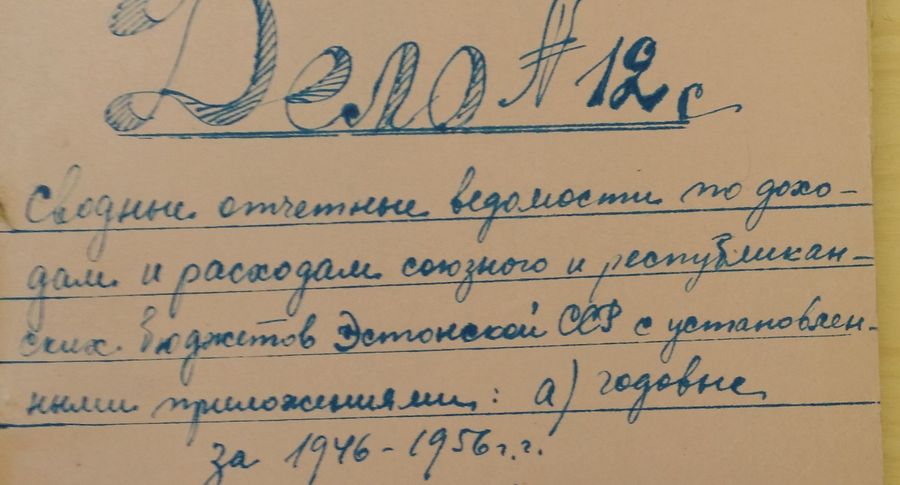 Дело № 12с
Сводные отчетные ведомости по дохо-
дам и расходам союзного и республикан-
ских бюджетов Эстонской ССР с установлен-
ными приложениями: а) годовые
за 1946-1956 г.г.